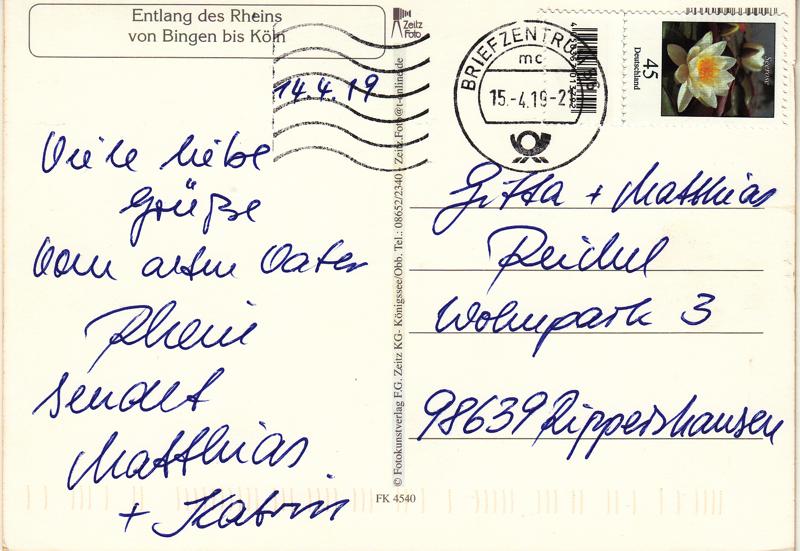 Entlang des Rheins
von Bingen bis Köln
Zeitz
Foto
14.4.19
BRIEFZENTRUM 56
mc
15.-4.19-21
45
Deutschland
Seerose
Viele liebe
Grüße
vom alten Vater
Rhein
sendet
Matthias
+ Katrin
© Fotokunstverlag F.G. Zeitz KG- Königssee/Obb. Tel.: 08652/2340 · Zeitz.Foto@t-online.de
FK 4540
Gitta + Matthias
Reichel
Wohnpark 3
98639 Rippershausen